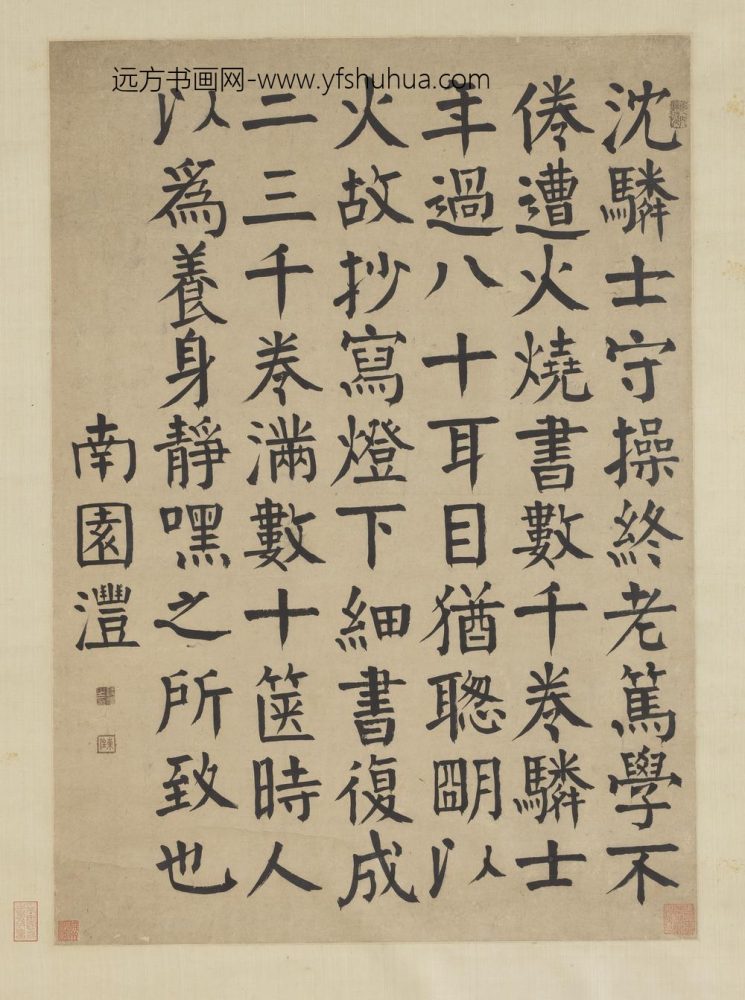 远方书画网-www.yfshuhua.com
沈驎士守操終老篤學不
倦遭火燒書數千卷驎士
年過八十耳目猶聰明以
火故抄寫燈下細書復成
二三千卷滿數十篋時人
以爲養身靜嘿之所致也
南園灃